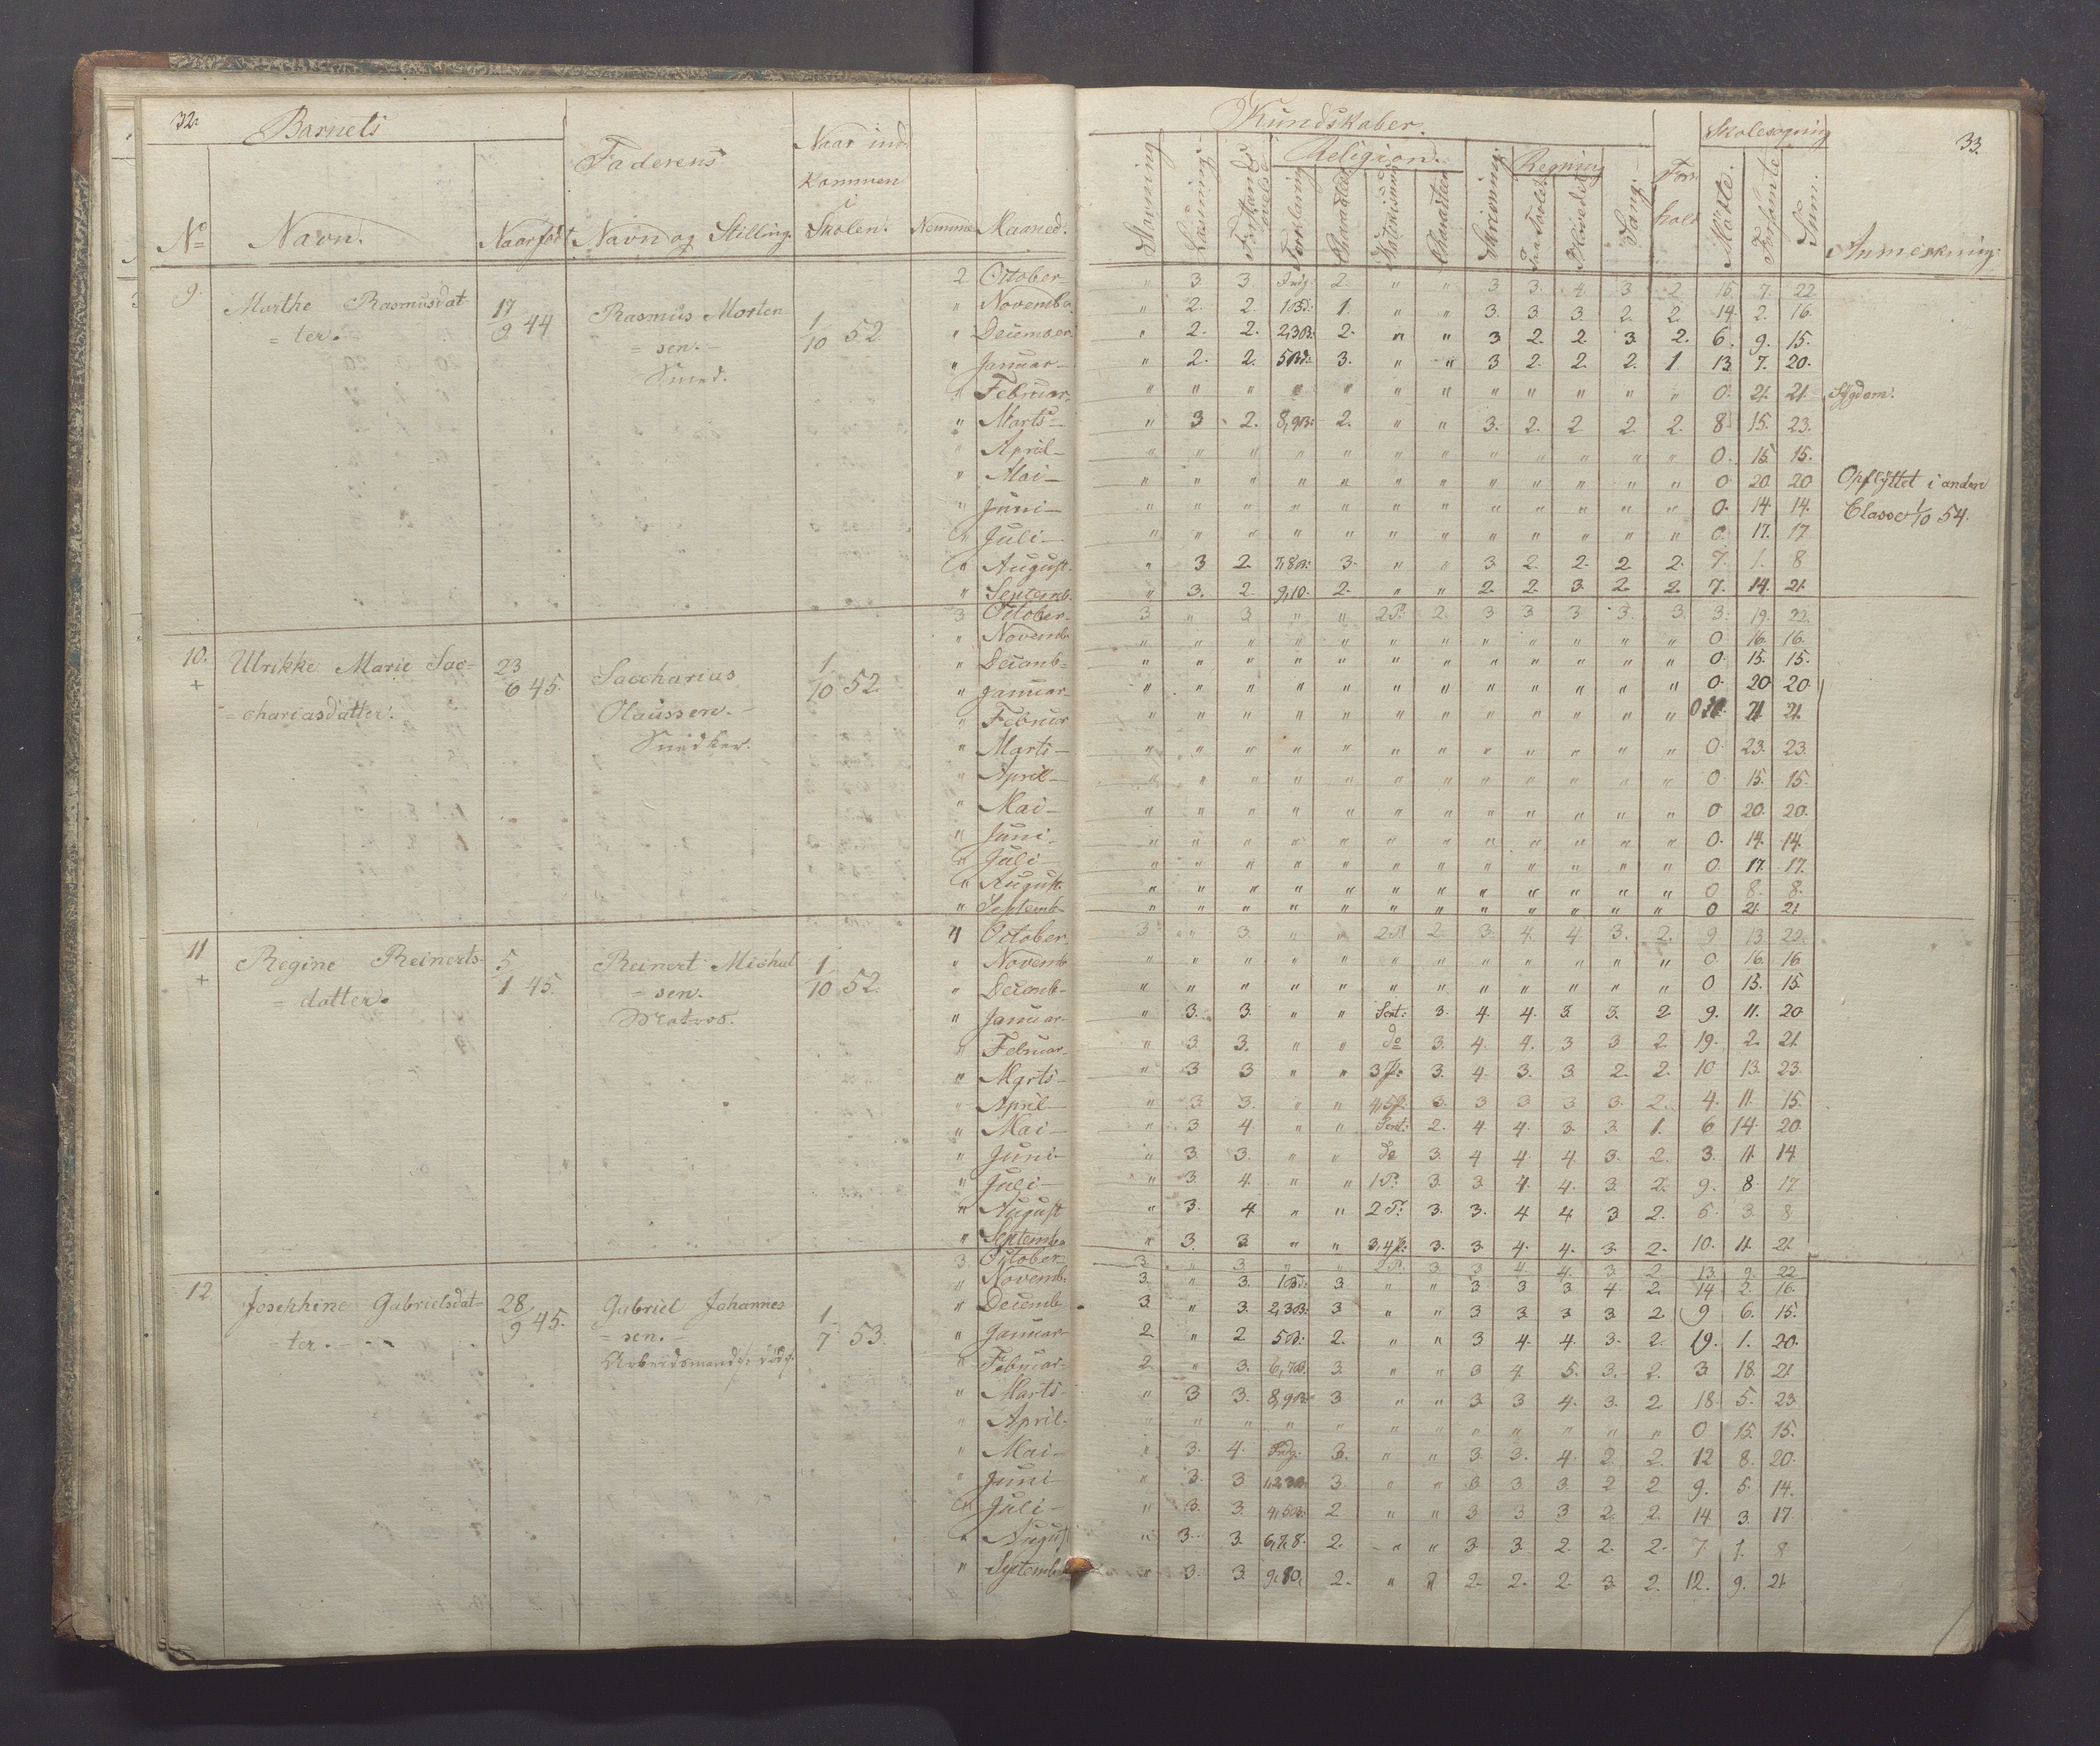 32.
Barnets
Faderens
Naar ind-
kommen
i
Skolen.
No
Navn.
Naar født
Navn og Stilling.
Nummer
Maaned.
9.
Marthe Rasmusdat
= ter.
17/9 44
Rasmus Morten
= sen. -
Smed.
1/10 52
2 October
" November
" December
" Januar
" Februar
" Marts
" April
" Mai
" Juni
" Juli
" August
" Septemb.
10. +
Ulrikke Marie Sac-
= chariasdatter.
23/6 45.
Saccharius
Olaussen. -
Snedker.
1/10 52
3 October
" Novemb
" Decemb
" Januar
" Februar
" Marts
" April
" Mai
" Juni
" Juli
" August
" Septemb
11 +
Regine Reinerts-
= datter.
5/1 45.
Reinert Michal
= sen.
Matros.
1/10 52.
4 October
" Novemb
" Decemb
" Januar
" Februar
" Marts
" April
" Mai
" Juni
" Juli
" August
" Septemb
12
Josephine Gabrielsdat-
= ter.
28/9 45.
Gabriel Johannes
= sen.
Arbeidsmand
1/7 53.
3 October
" Novemb:
" Decemb
" Januar
" Februar
" Marts
" April
" Mai
" Juni
" Juli
" August
" Septemb
33.
Kundskaber.
Skolesøgning
Religion.
Regning
For-
hold
Stavning
Læsning
Forstands øvelse
Forklaring
Charakter
Katekismus
Charakter
Skrivning.
Paa Tavle
Hovedet
Sang.
Mødte.
Forsømte
Sum.
Anmerkning:
" 3 3 Indg: 2. " " 3 3. 4. 3 2 15. 7. 22
" 2. 2. 1 Bd: 1. " " 3. 3. 3. 2. 2 14. 2. 16.
" 2. 2. 2,3 B: 2. " " 3 2. 2. 3. 2. 6. 9. 15.
" 2. 2. 5 Bd: 3. " " 3 2. 2. 2. 1. 13. 7. 20.
" " " " " " " " " " " " 0. 21. 21. Sygdom.
" 3 2. 8,9 B: 2. " " 3. 2. 2 2. 2. 8 15. 23.
" " " " " " " " " " " " 0. 15. 15.
" " " " " " " " " " " " 0 20. 20 Opflyttet i anden
" " " " " " " " " " " " 0. 14 14. Classe 1/10 54.
" " " " " " " " " " " " 0. 17. 17
" 3 2. 7,8 B: 3. " " 3 2. 2. 2 2. 7. 1. 8
" 3. 2. 9,10. 2. " " 2. 2. 3. 2. 2. 7. 14. 21.
3 " 3 " " 2 P. 2. 3 3 3 3. 3. 3. 19. 22.
" " " " " " " " " " " " 0 16. 16.
" " " " " " " " " " " " 0. 15. 15.
" " " " " " " " " " " " 0. 20 20.
" " " " " " " " " " " " 0 21 21.
" " " " " " " " " " " " 0. 23. 23.
" " " " " " " " " " " " 0 15. 15.
" " " " " " " " " " " " 0 20. 20.
" " " " " " " " " " " " 0. 14. 14.
" " " " " " " " " " " " 0. 17. 17.
" " " " " " " " " " " " 0 8. 8.
" " " " " " " " " " " " 0 21. 21.
3 " 3. " " 2 P. 2. 3. 4. 4 3. 2. 9 13. 22.
" " " " " " " " " " " " 0. 16. 16.
" " " " " " " " " " " " 0 15. 15.
" 3. 3. " " Sent: 3. 4. 4. 3. 3. 2 9. 11. 20
" 3. 3. " " do 3. 4. 4. 3 3 2 19. 2. 21.
" 3 3 " " 3 P: 3. 4. 3. 3. 2. 2. 10 13. 23.
" 3 3. " " 4,5 P: 3. 3 3 3 3. 2. 4. 11. 15.
" 3 4. " " Sent: 2. 4 4. 3. 3. 1. 6 14. 20.
" 3. 3. " " do 3. 4 4. 4. 3. 2. 3. 11. 14
" 3. 4. " " 1 P. 3. 3 4. 4. 3. 2. 9. 8. 17
" 3. 4 " " 2 P: 3. 3. 4 4 3 2. 5. 3. 8
" 3. 3. " " 3,4 P: 3. 3. 4. 4. 3. 2. 10. 11. 21.
3 " 3 " " 2 P. 3 3 4 4. 3 2 13 9. 22
3. " 3. 1 Bd: 3 " " 3 3 3 4 2. 14 2. 16.
3. " 3. 2,3 B: 3 " " 3 3 3 3 2 9 6. 15.
2. " 2 5 B: 2. " " 3 4. 4. 3. 2. 19. 1. 20.
2. " 3. 6,7 B. 3. " " 3 4. 5. 3. 2. 3 18. 21
" 3 3. 8,9 B: 3 " " 3. 3 4. 3. 2. 18. 5. 23
" " " " " " " " " " " " 0 15. 15.
" 3. 4. Indg: 3. " " 3. 3. 4. 2. 2. 12 8. 20.
" 3. 3 1,2,3 B: 3 " " 3 3. 3. 2 2 9. 5. 14.
" 3. 3. 4,5 B: 2 " " 3 3 3 2. 2. 14 3. 17.
" 3. 3. 6,7,8. 2. " " 3. 3. 2. 2. 2. 7 1. 8
" 3. 3. 9,10, 2. " " 2. 2. 2. 3. 2. 12. 9. 21.